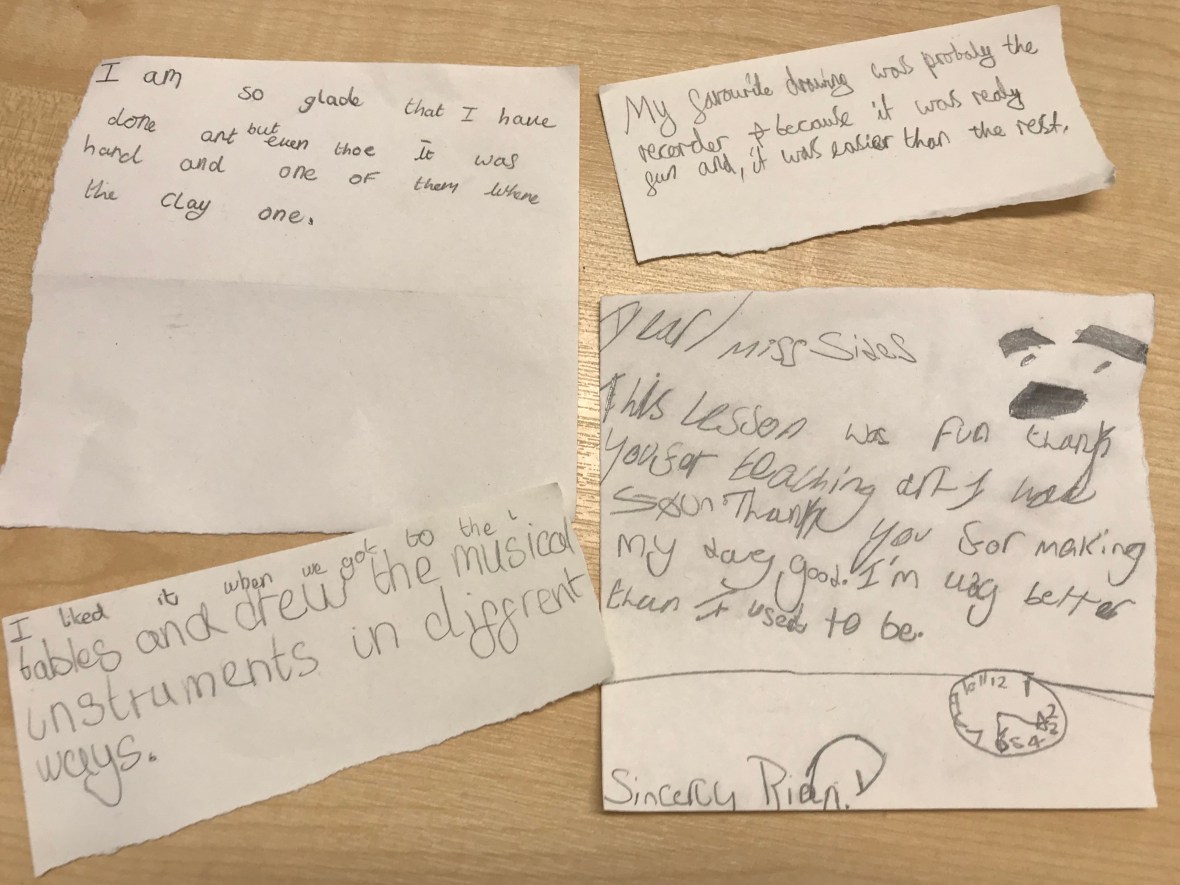 I am so glade that I have
done art but even thoe it was
hard and one of them where
the clay one.
My favourite drawing was probaly the
recorder because it was realy
fun and, it was easier than the rest.
Dear Miss Sides
This Lesson was fun thank
you for teaching art I was
Thank you for making
my day good. I'm way better
than I used to be.
10 11 12 1
2
6 5 4
Sincerly Rian!
I liked it when we got to the
tables and drew the musical
instruments in diffrent
ways.